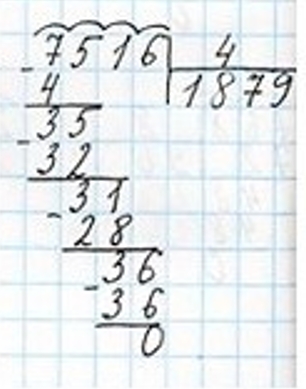 7516 4
- 4 1879
35
- 32
31
- 28
36
- 36
0